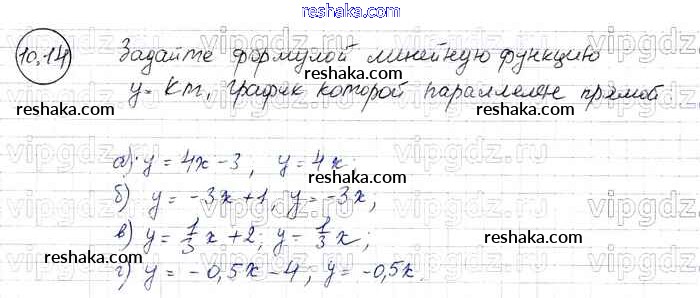 reshaka.com
10.14 Задайте формулой линейную функцию
y=Km, график которой параллелен прямой
reshaka.com reshaka.com reshaka.com
а) y = 4x - 3, y = 4x;
reshaka.com
б) y = -3x + 1, y = -3x;
в) y = 1/3 x + 2; y = 1/3 x;
reshaka.com reshaka.com
г) y = -0,5x - 4; y = -0,5x.
reshaka.com
vipgdz vipgdz vipgdz